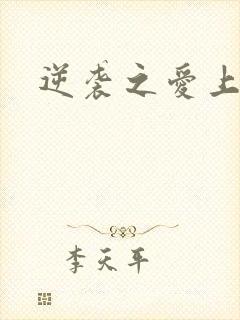 逆袭之爱上
李天平